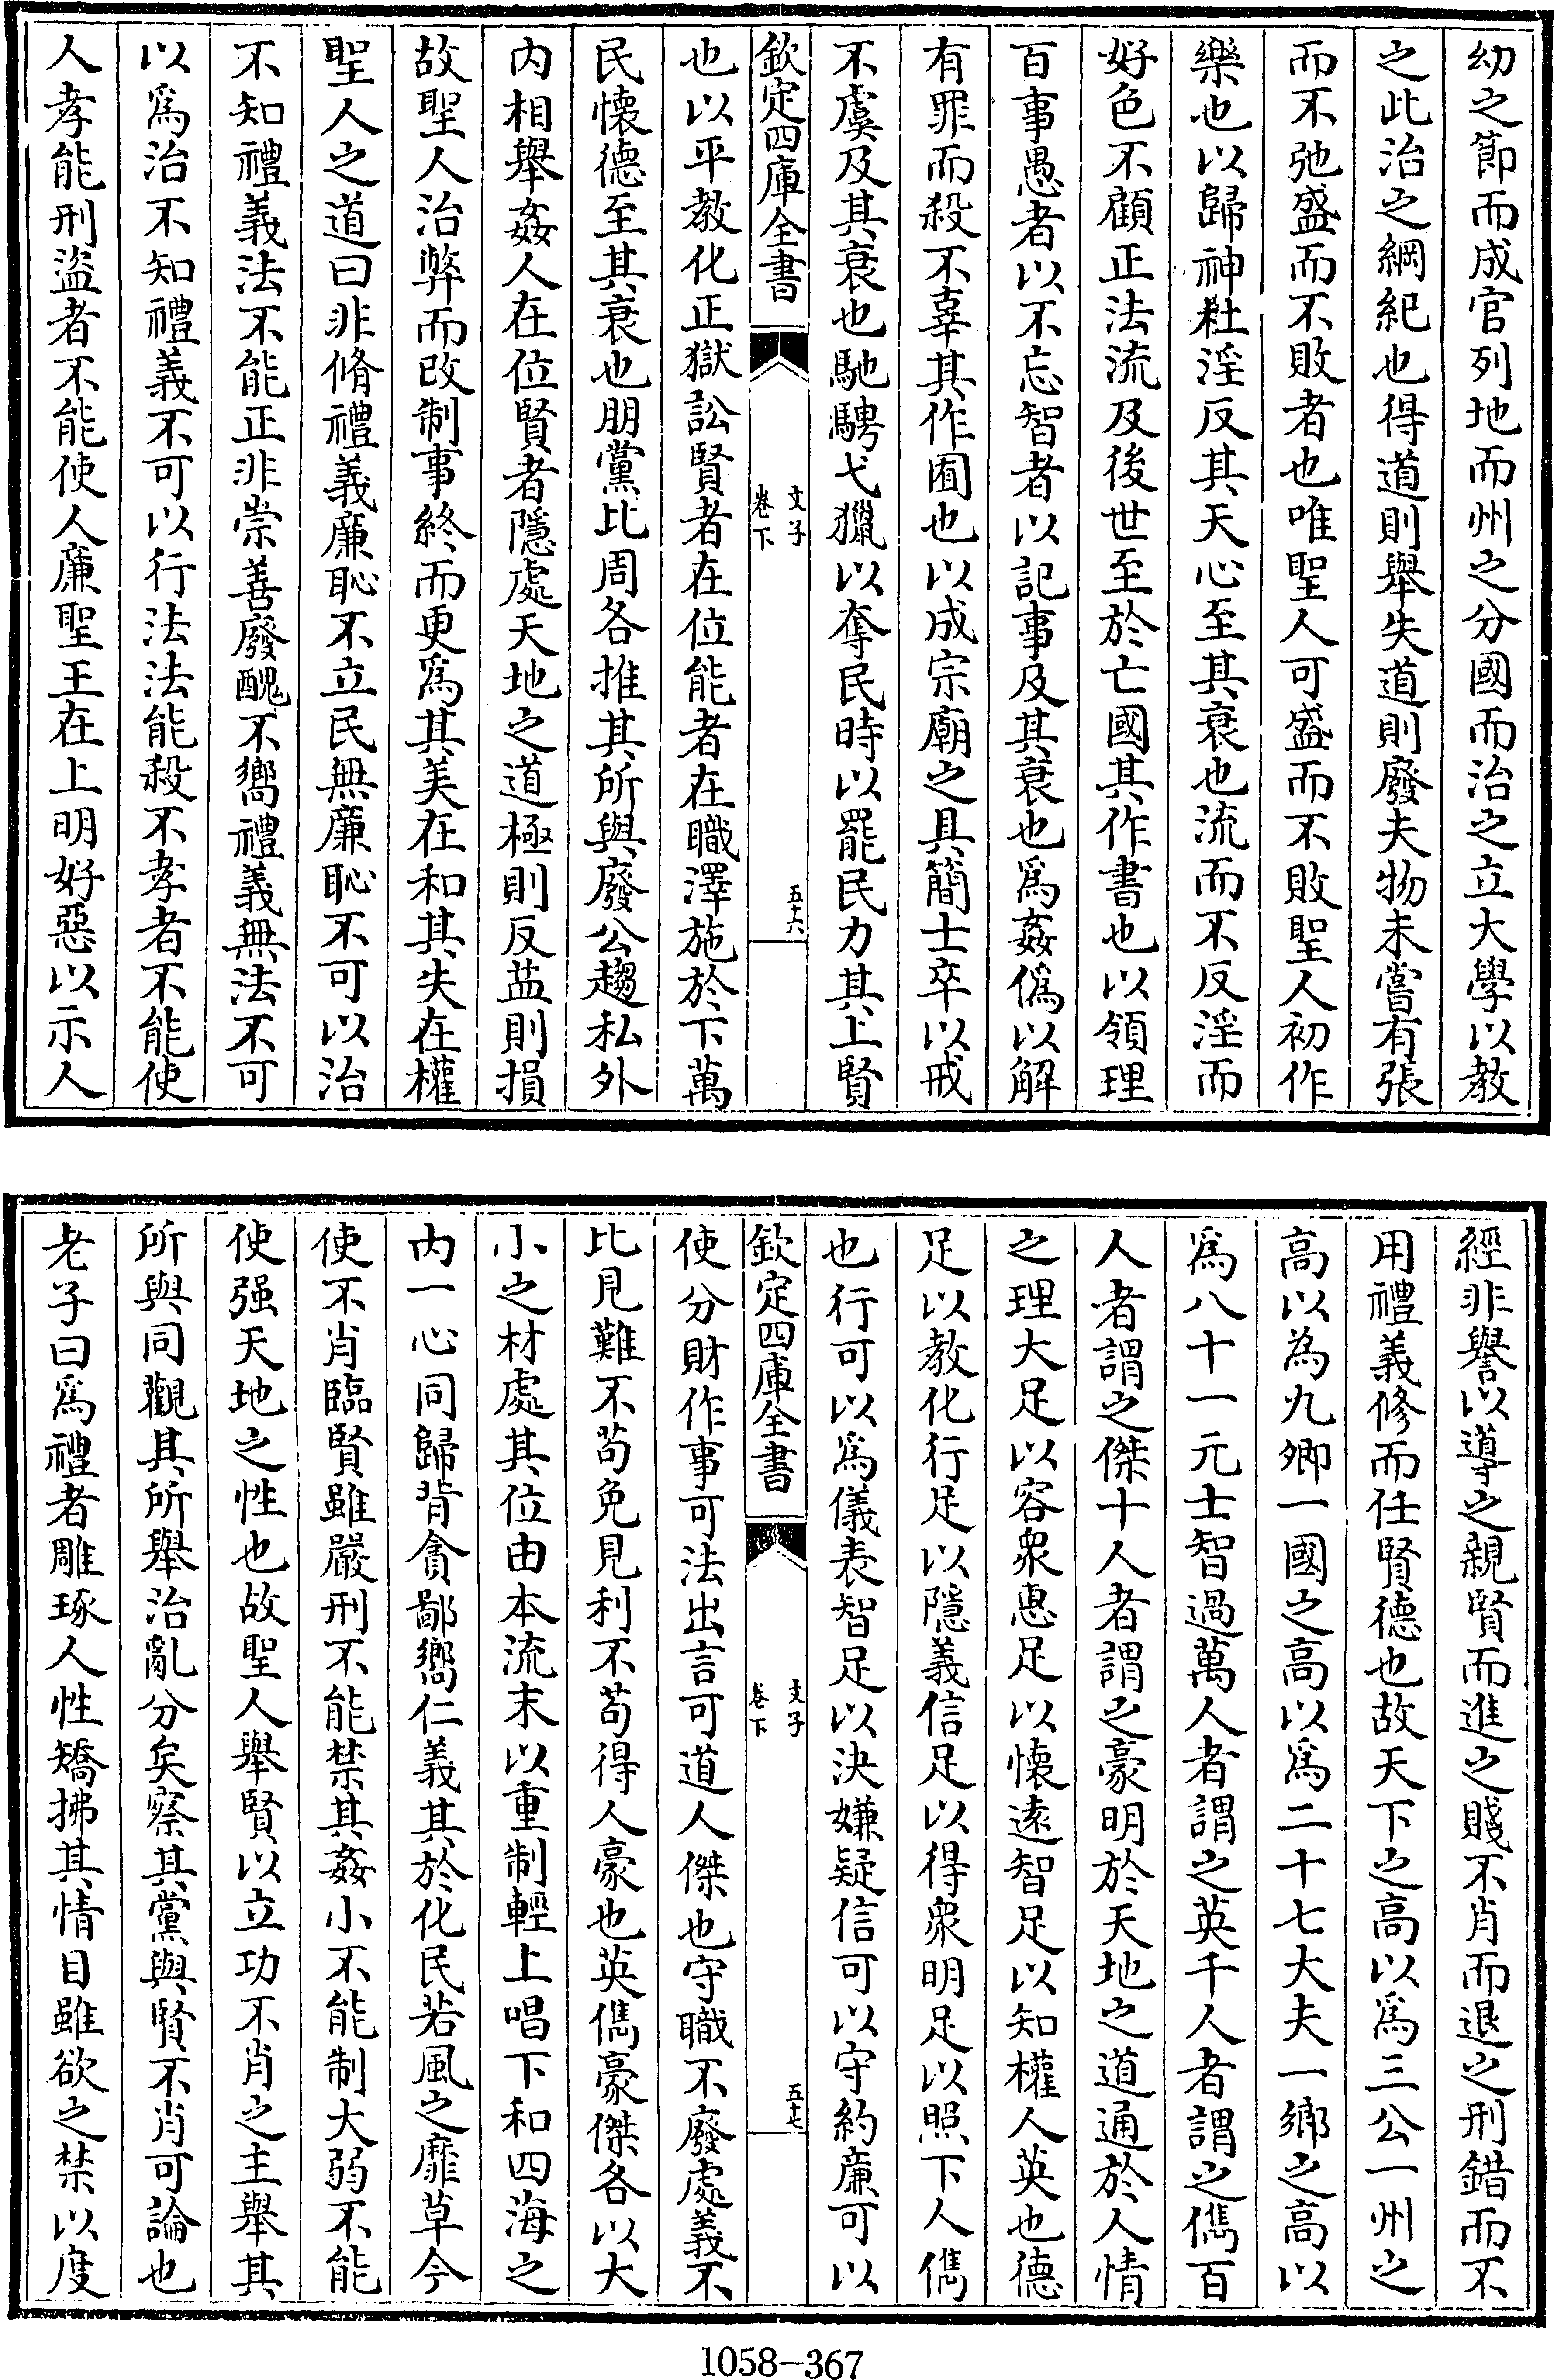 幼之節而成官列地而州之分國而治之立大學以教
之此治之綱紀也得道則舉失道則廢夫物未嘗有張
而不弛盛而不敗者也唯聖人可盛而不敗聖人初作
樂也以歸神杜淫反其天心至其衰也流而不反淫而
好色不顧正法流及後世至於亡國其作書也以領理
百事愚者以不忘智者以記事及其衰也爲姦偽以解
有罪而殺不辜其作囿也以成宗廟之具簡士卒以戒
不虞及其衰也馳騁弋獵以奪民時以罷民力其上賢
欽定四庫全書
文子
卷下
五十六
也以平教化正獄訟賢者在位能者在職澤施於下萬
民懷德至其衰也朋黨比周各推其所與廢公趨私外
内相舉姦人在位賢者隱處天地之道極則反益則損
故聖人治弊而改制事終而更爲其美在和其失在權
聖人之道曰非脩禮義廉恥不立民無廉恥不可以治
不知禮義法不能正非崇善廢醜不嚮禮義無法不可
以爲治不知禮義不可以行法法能殺不孝者不能使
人孝能刑盜者不能使人廉聖王在上明好惡以示人
經非譽以導之親賢而進之賤不肖而退之刑錯而不
用禮義修而任賢德也故天下之高以爲三公一州之
高以為九卿一國之高以爲二十七大夫一鄉之高以
爲八十一元士智過萬人者謂之英千人者謂之儁百
人者謂之傑十人者謂之豪明於天地之道通於人情
之理大足以容衆惠足以懷遠智足以知權人英也德
足以教化行足以隱義信足以得衆明足以照下人儁
也行可以爲儀表智足以決嫌疑信可以守約廉可以
欽定四庫全書
文子
卷下
五十七
使分財作事可法出言可道人傑也守職不廢處義不
比見難不苟免見利不苟得人豪也英儁豪傑各以大
小之材處其位由本流末以重制輕上唱下和四海之
内一心同歸背貪鄙嚮仁義其於化民若風之靡草今
使不肖臨賢雖嚴刑不能禁其姦小不能制大弱不能
使强天地之性也故聖人舉賢以立功不肖之主舉其
所與同觀其所舉治亂分矣察其黨與賢不肖可論也
老子曰爲禮者雕琢人性矯拂其情目雖欲之禁以度
1058-367